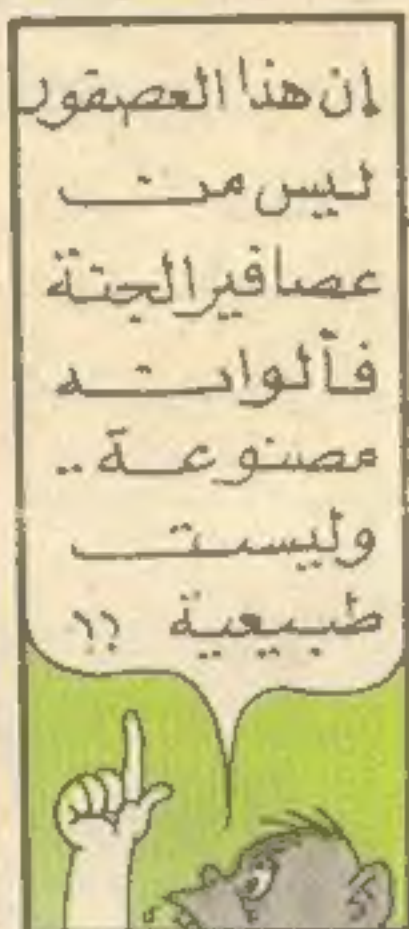 إن هذا العصفور
ليس من
عصافير الجنة
فألوانه
مصنوعة ..
وليست
طبيعية !!